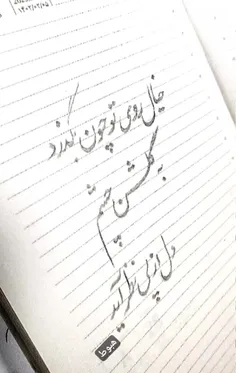 خیال روی تو چون بگذرد
به گلشن چشم
دل از پی نظر آید
هبوط